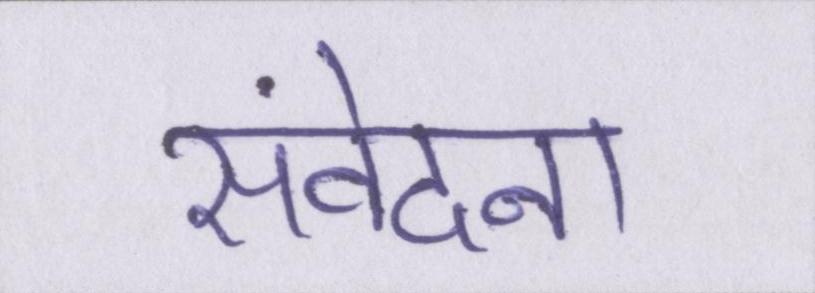 संवेदना